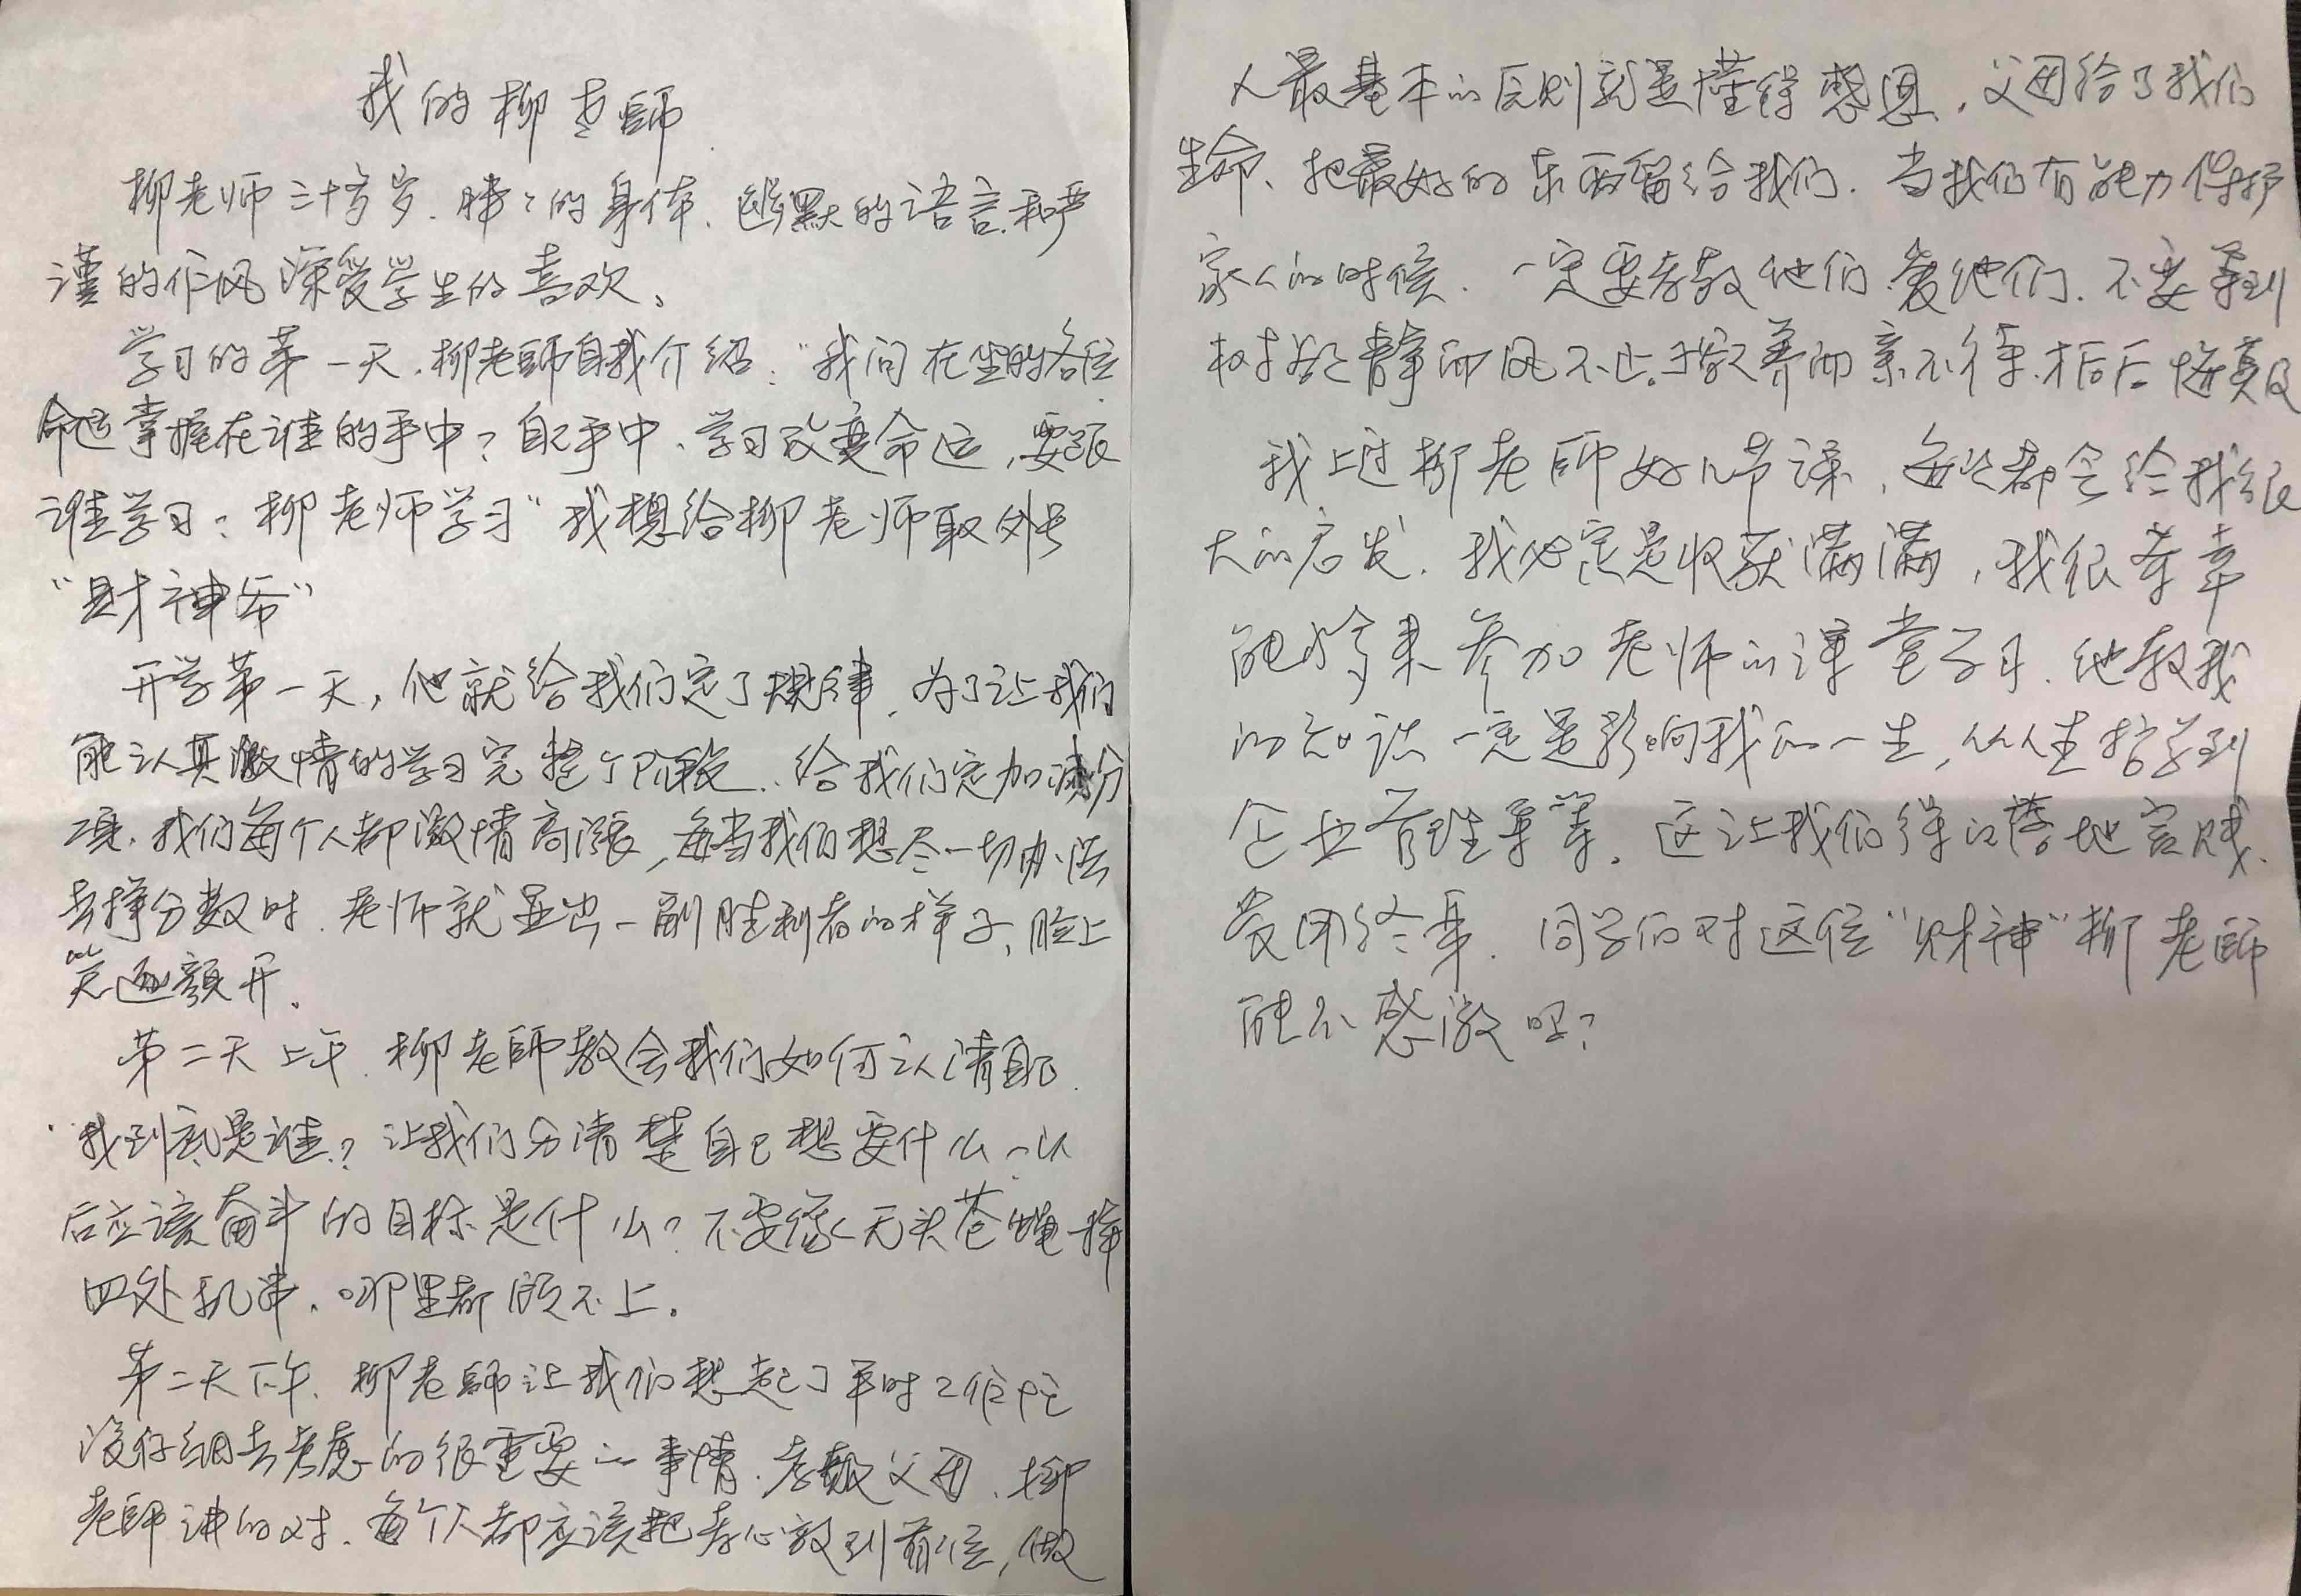 我的柳老師
柳老师三十多岁、胖胖的身体、幽默的语言和严
谨的作风深受学生的喜欢。
学习的第一天，柳老師自我介绍：“我问在坐的各位
命运掌握在谁的手中？自己手中、学习改变命运，要跟
谁学习？柳老师学习”我想给柳老师取外号
“財神爷”
开学第一天，他就给我们定了规律，为了让我们
能认真激情的学习完整个阶段，给我们定加减分
项，我们每个人都激情高涨，每当我们想尽一切办法
去挣分数时，老师就显出一副胜利者的样子，脸上
笑逐颜开。
第二天上午，柳老師教会我们如何认清自己，
我到底是谁？让我们分清楚自己想要什么、以
后应该奋斗的目标是什么？不要像个无头苍蝇一样
四处乱串，哪里都顾不上。
第二天下午，柳老師让我们想起了平时工作忙
没仔细去考虑的很重要的事情，孝敬父母，柳
老師讲的对，每个人都应该把孝心放到首位，做
人最基本的原则就是懂得感恩，父母给了我们
生命、把最好的东西留给我们，当我们有能力保护
家人的时候，一定要孝敬他们、爱他们，不要等到
树欲静而风不止、子欲养而亲不待，才后悔莫及
我上过柳老師好几节课，每次都会给我很
大的启发，我必定是收获满满，我很荣幸
能够来参加老师的课堂学习，他教我
的知识一定是影响我的一生，从人生哲学到
企业管理等等。这让我们得以落地实践、
受用终身，同学们对这位“财神”柳老師
能不感激吗？